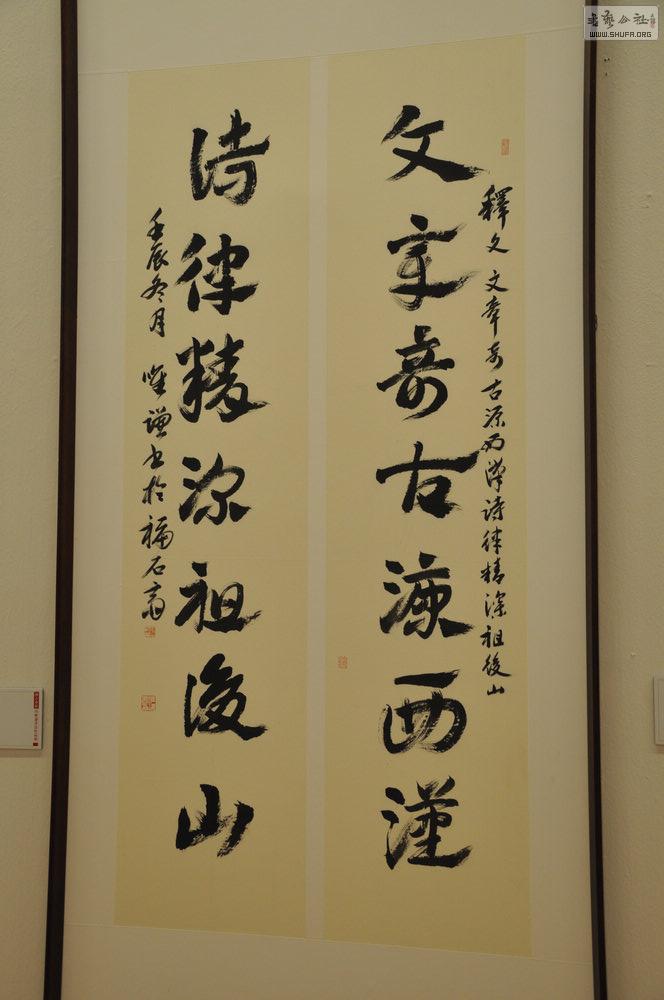 釋文 文章奇古源西漢詩律精深祖後山
文章奇古源西漢
詩律精深祖後山
壬辰冬月 唯謙書於福石齋
書藝公社
WWW.SHUFA.ORG